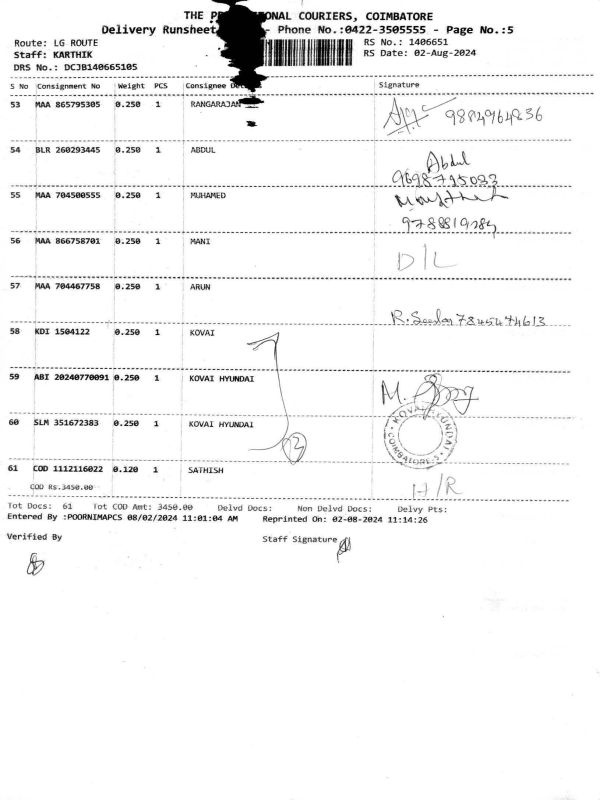 THE PR    IONAL COURIERS, COIMBATORE
Delivery Runsheet    - Phone No.:0422-3505555 - Page No.:5
Route: LG ROUTE    RS No.: 1406651
Staff: KARTHIK    RS Date: 02-Aug-2024
DRS No.: DCJB140665105
S No Consignment No Weight PCS Consignee    Signature
53 MAA 865795305 0.250 1 RANGARAJAN
54 BLR 260293445 0.250 1 ABDUL
Abdul
55 MAA 704500555 0.250 1 MUHAMED
56 MAA 866758701 0.250 1 MANI
D/L
57 MAA 704467758 0.250 1 ARUN
7845474613
58 KDI 1504122 0.250 1 KOVAI
59 ABI 20240770091 0.250 1 KOVAI HYUNDAI
M.
60 SLM 351672383 0.250 1 KOVAI HYUNDAI
KOVAI HYUNDAI
COIMBATORE
61 COD 1112116022 0.120 1 SATHISH
COD Rs.3450.00
Tot Docs: 61 Tot COD Amt: 3450.00 Delvd Docs: Non Delvd Docs: Delvy Pts:
Entered By :POORNIMAPCS 08/02/2024 11:01:04 AM Reprinted On: 02-08-2024 11:14:26
Verified By Staff Signature